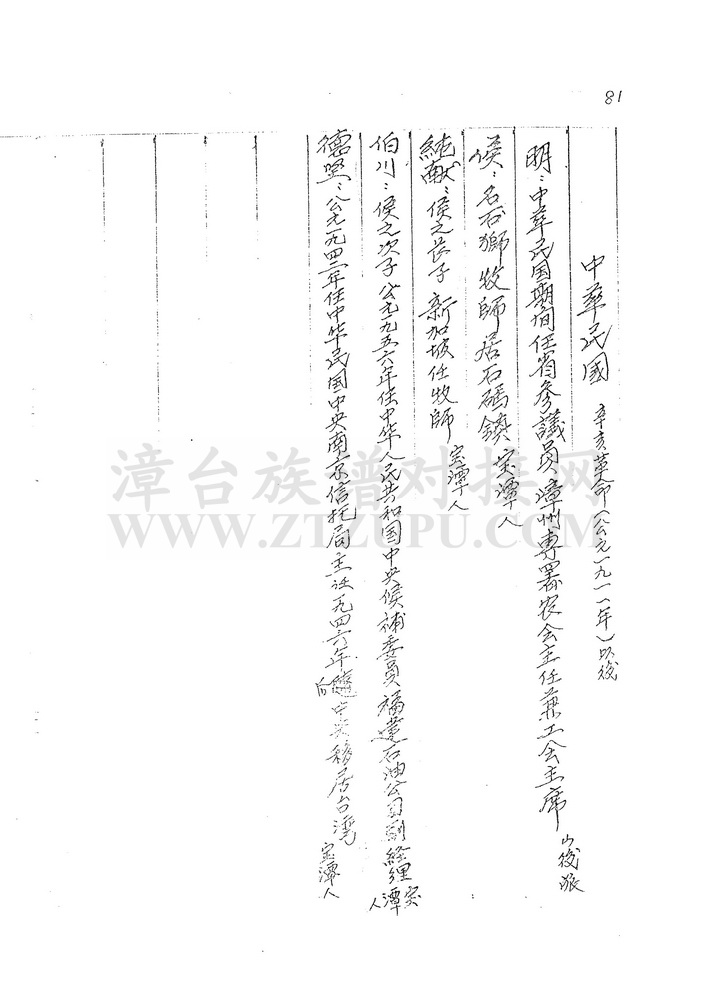 81
中華民國 辛亥革命(公元一九一一年)以後
明：中華民国期间任省参議員漳州專署农会主任兼工会主席 山後派
侯：名石獅牧師居石码鎮 宝潭人
純猷：侯之长子 新加坡任牧師 宝潭人
伯川：侯之次子公元一九五六年任中华人民共和国中央候補委員福建石油公司副経理 宝潭人
德坚：公元一九四二年任中华民国中央南京信托局主任一九四六年后随中央移居台湾 宝潭人
漳台族谱对接网
WWW.ZTZUPU.COM